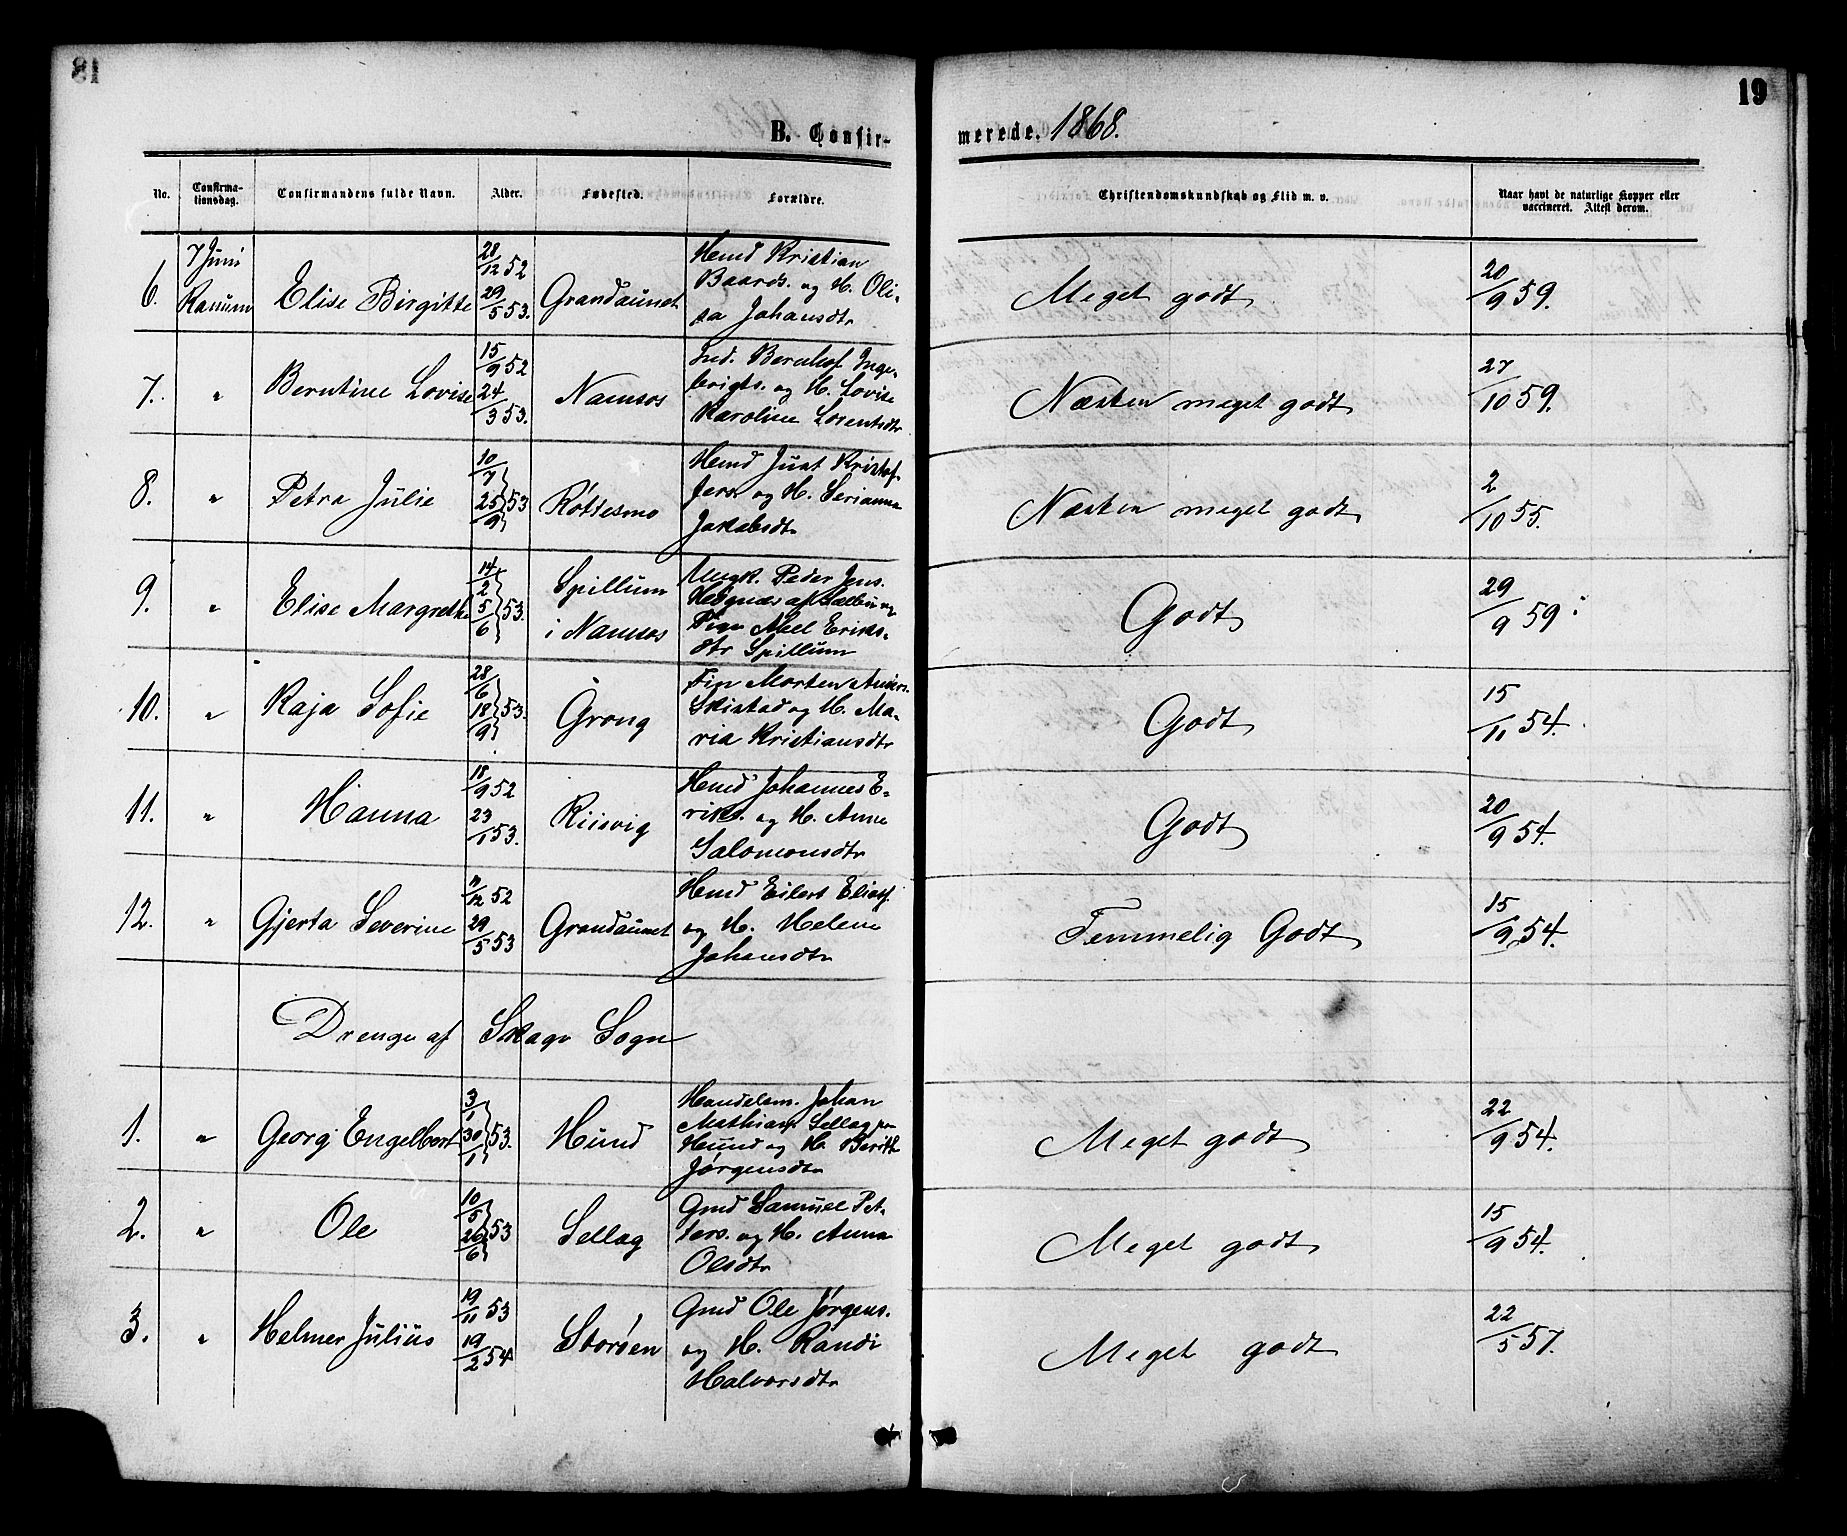 19
B. Confir- merede. 1868.
No. Confirma-tionsdag. Confirmandens fulde Navn. Alder. Fødested. Forældre. Christendomskundskab og Flid m. v. Naar havt de naturlige Kopper eller vaccineret. Attest derom.
6. 7 Juni Ranum Elise Birgitte 28/12 52 29/5 53. Grandaunet Hmd Kristian
Baards. og H. Oli-
sa Johansdtr Meget godt 20/9 59.
7. " Berntine Lovise 15/9 52 24/3 53. Namsos Ind. Bernhof Inge-
brigts. og H. Lovise
Karoline Lorentsdtr Næsten meget godt 27/10 59.
8. " Petra Julie 10/7 25/9 53 Røttesmo Hmd Just Kristof-
fers. og H. Serianna
Jakobsdtr Næsten meget godt 2/10 55.
9. " Elise Margrethe 14/2 5/6 53. Spillum
i Namsos Ungk. Peder Jens.
Hegnæs af Sælbu og
Pige Abel Eriks-
dtr Spillum Godt 29/9 59
10. " Kaja Sofie 28/6 18/9 53. Grong Morten Anders.
Skistad og H. Ma-
ria Kristiansdtr Godt 15/11 54.
11. " Hanna 18/9 52 23/1 53. Riisvig Hmd Johannes E-
riks. og H. Anne
Salomonsdtr Godt 20/9 54.
12. " Gjerta Severine 11/12 52 29/5 53 Grandaunet Hmd Eilert Eliasf.
og H. Helene
Johansdtr Temmelig Godt 15/9 54.
Drenge af Skage Sogn
1. " Georg Engelbert 3/1 30/1 53. Hund Handelsm. Johan
Mathias Sellæg paa
Hund og H. Berith
Jørgensdtr Meget godt 22/9 54.
2. " Ole 10/5 26/6 53 Sellæg Gmd Samuel Pet-
ters. og H. Anna
Olsdtr Meget godt 15/9 54.
3. " Helmer Julius 19/11 53 19/2 54 Storøen Gmd Ole Jørgens.
og H. Randi
Halvorsdtr Meget godt 22/5 57.